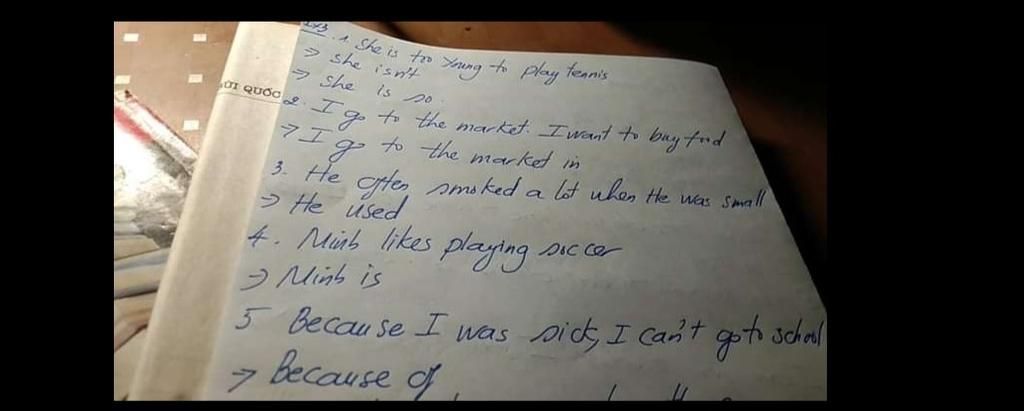 1. She is too young to play tennis
→ she isn't
→ She is so
ÙI QUỐC
2. I go to the market. I want to buy food
→ I go to the market in
3. He often smoked a lot when He was small
→ He used
4. Minh likes playing soccer
→ Minh is
5 Because I was sick, I can't go to school
→ Because of